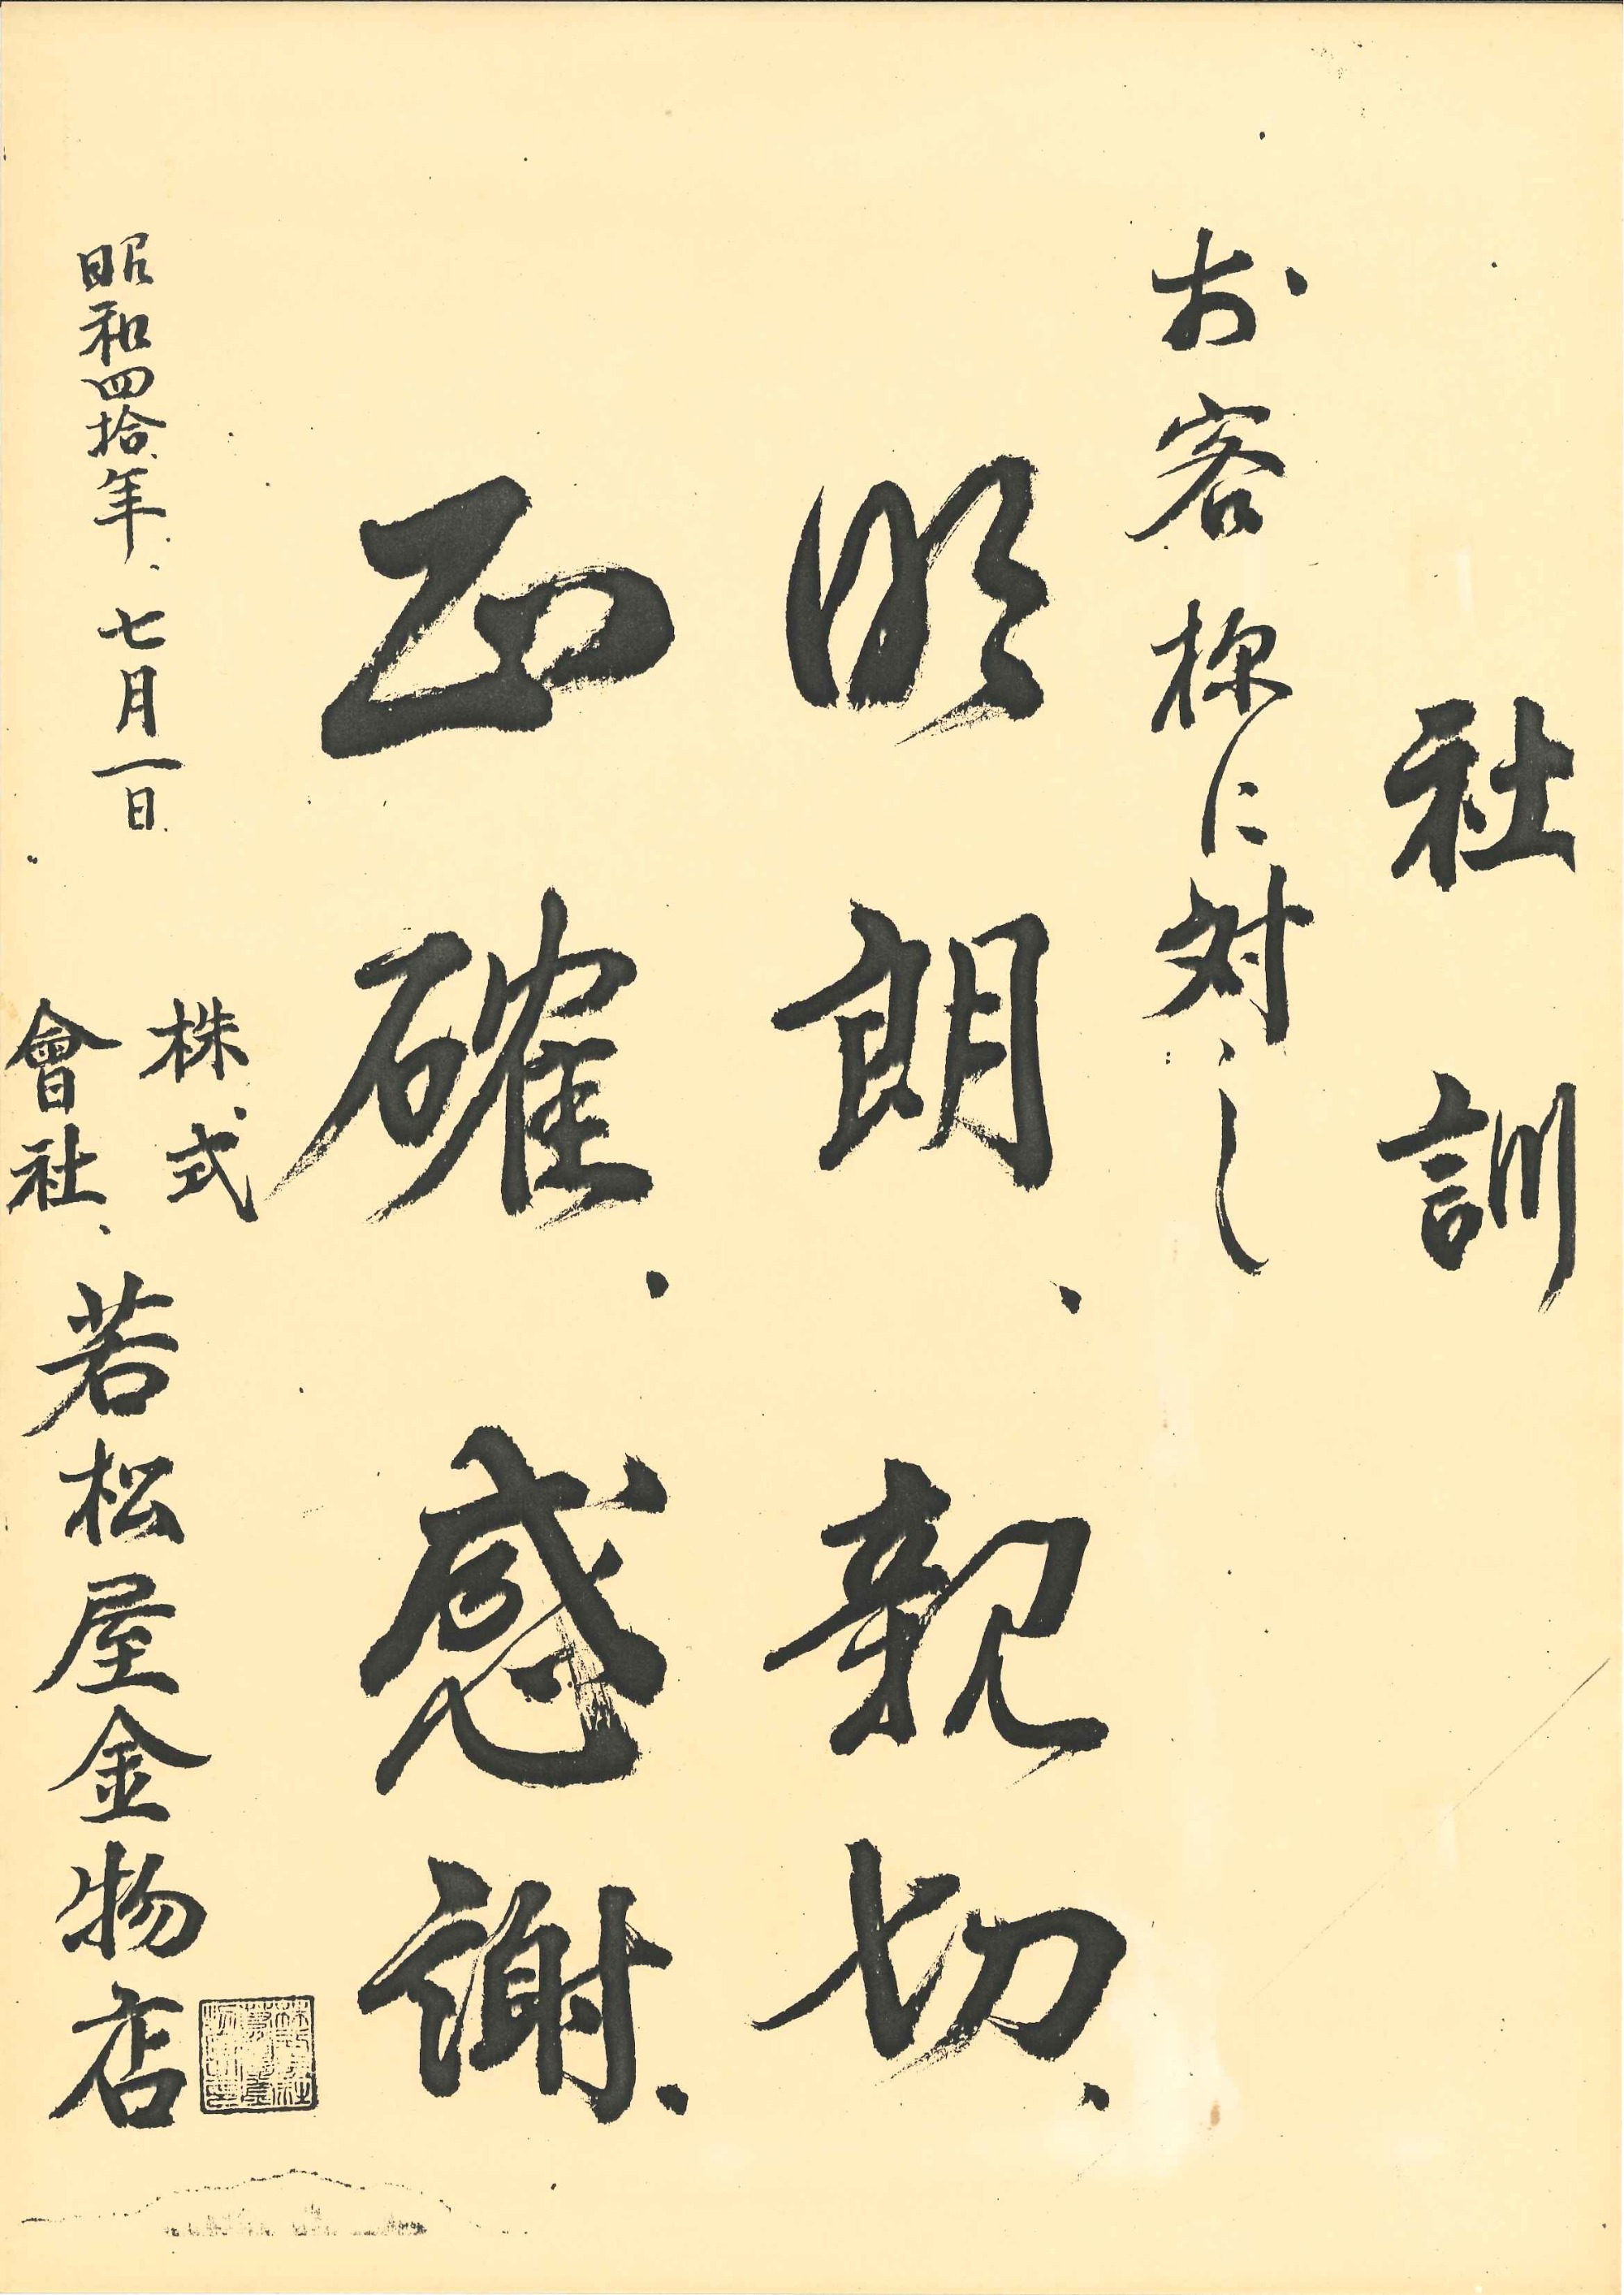 社訓
お客様に対し
明朗、親切、
正確、感謝、
昭和四拾年、七月一日
株式會社、若松屋金物店